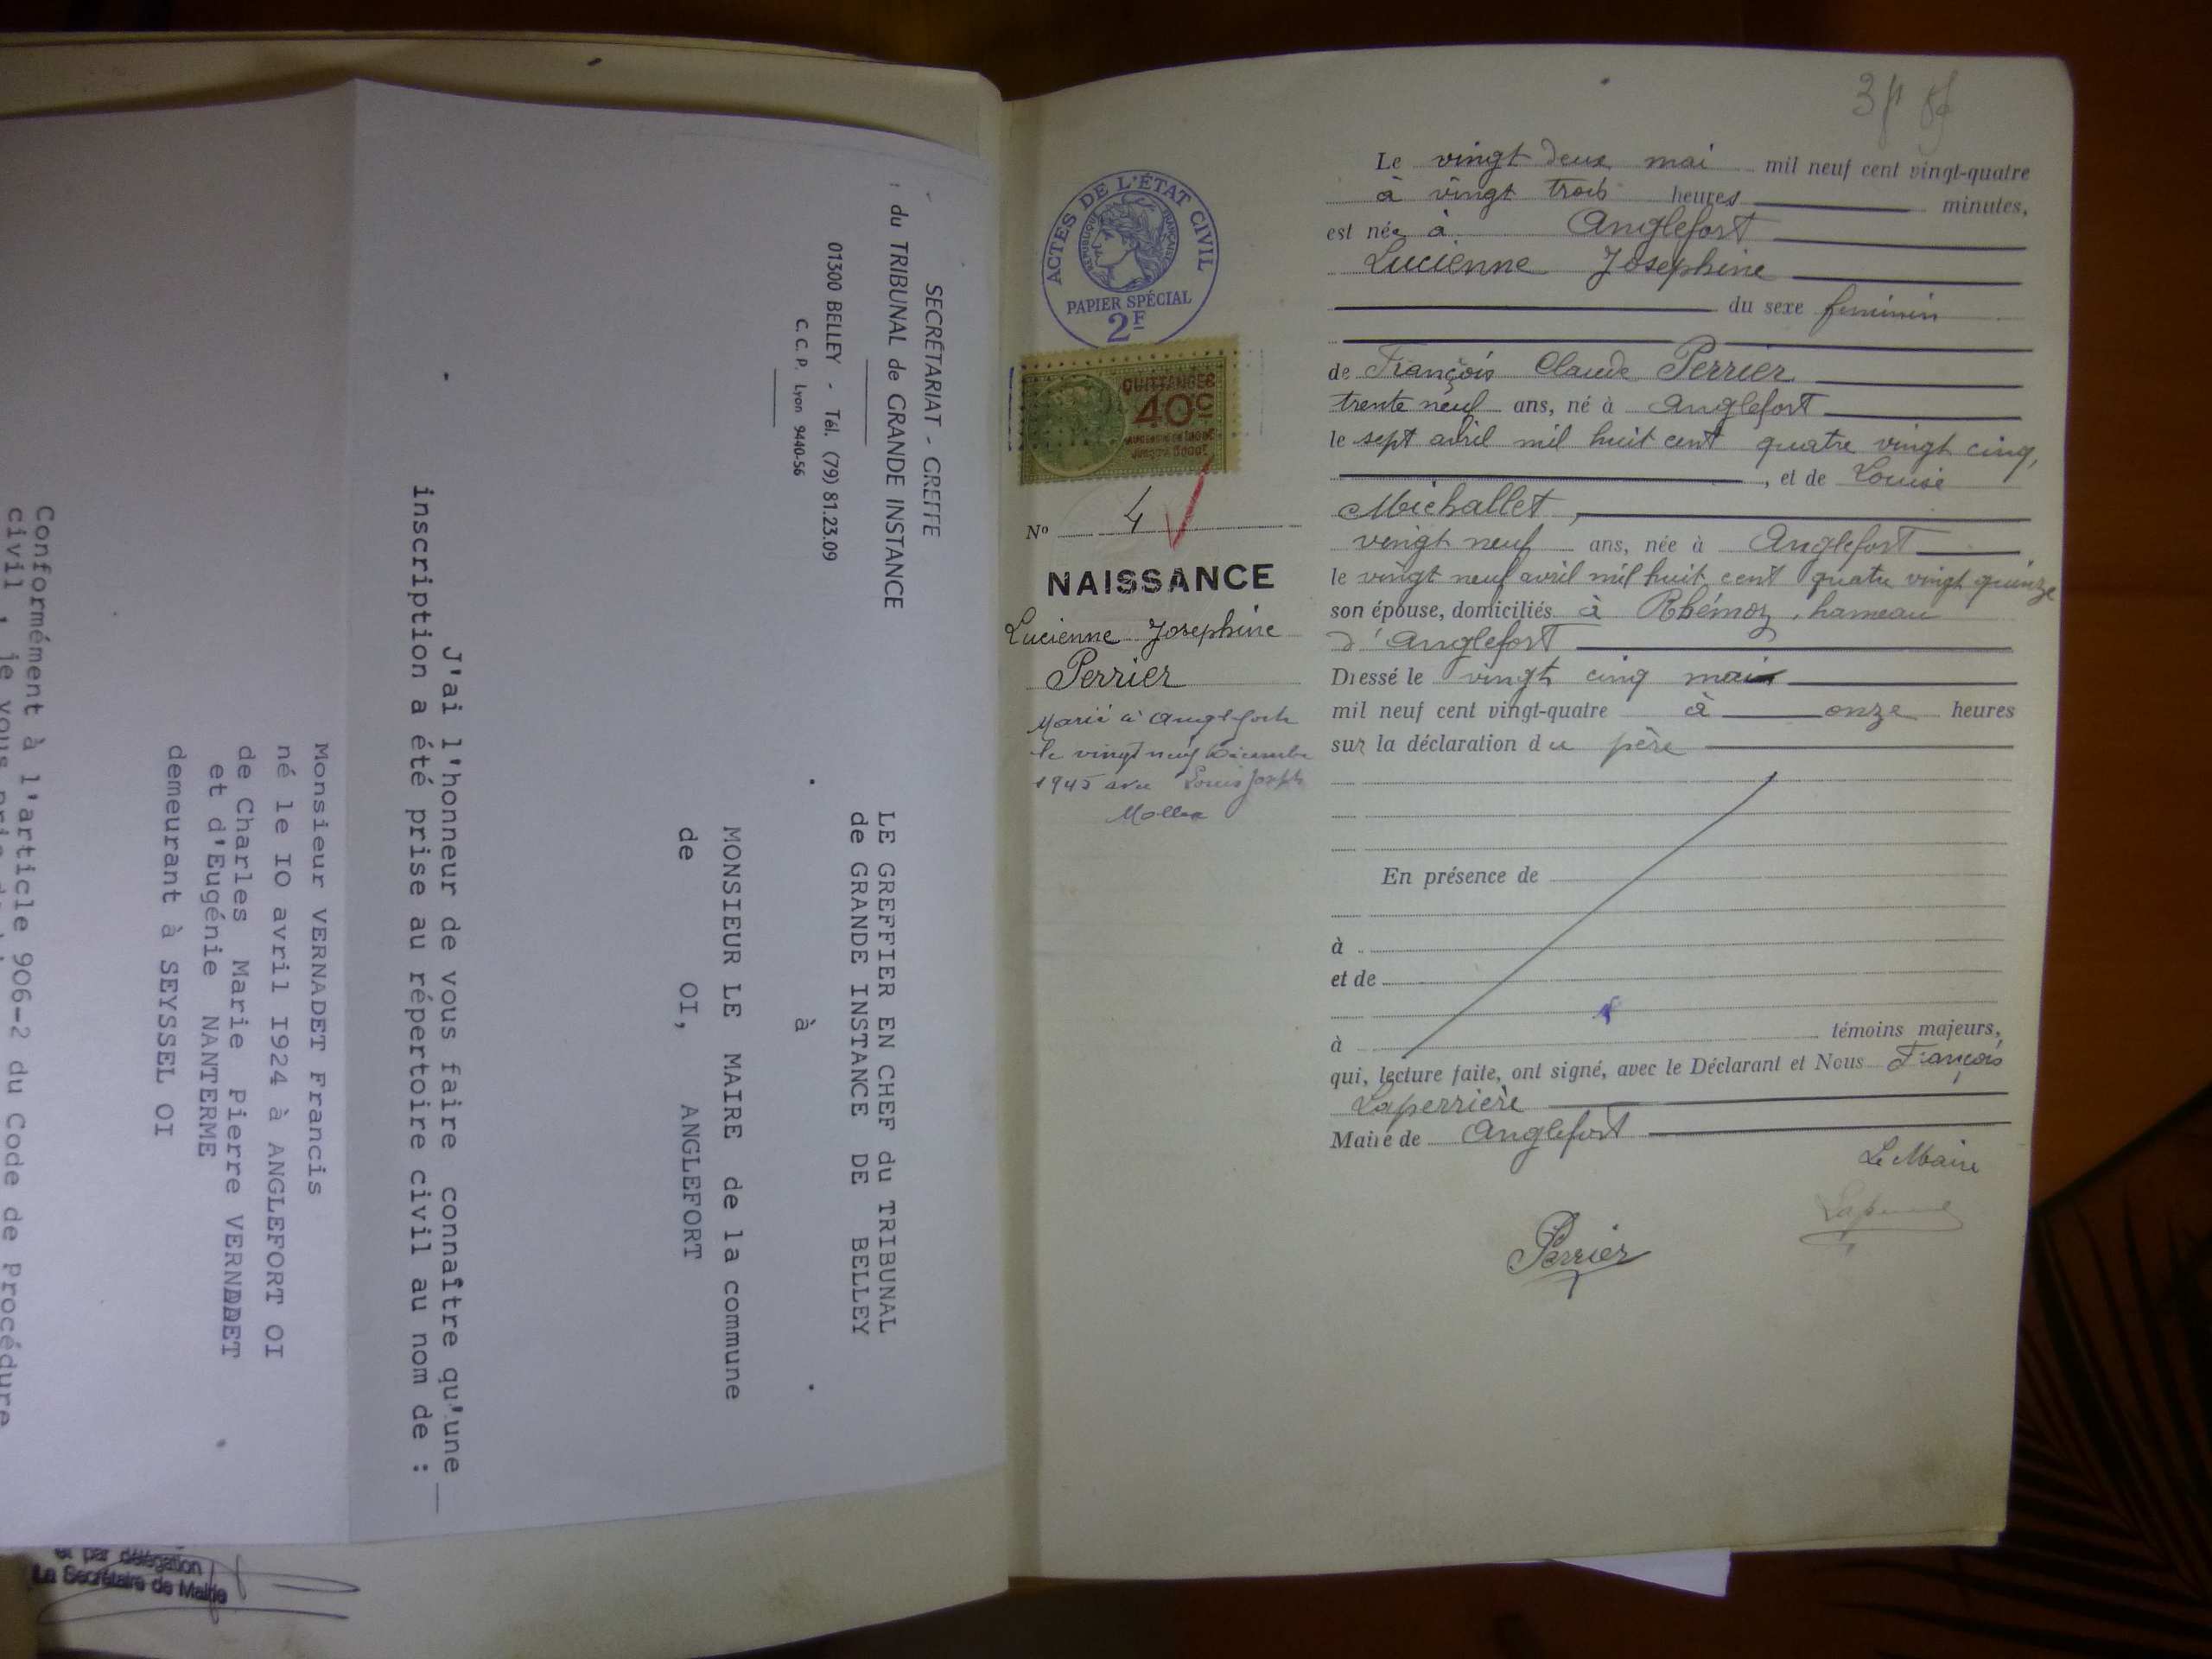 SECRÉTARIAT - GREFFE
du TRIBUNAL de GRANDE INSTANCE
01300 BELLEY - Tél. (79) 81.23.09
C. C. P. Lyon 9440-56
LE GREFFIER EN CHEF du TRIBUNAL
de GRANDE INSTANCE DE BELLEY
à
MONSIEUR LE MAIRE de la commune
de OI, ANGLEFORT
J'ai l'honneur de vous faire connaître qu'une
inscription a été prise au répertoire civil au nom de :
Monsieur VERNADET Francis
né le IO avril I924 à ANGLEFORT OI
de Charles Marie Pierre VERNADET
et d'Eugénie NANTERME
demeurant à SEYSSEL OI
Conformément à l'article 906-2 du Code de procédure
civil, je vous prie
et par délégation
La Secrétaire de Mairie
ACTES DE L'ÉTAT CIVIL
RÉPUBLIQUE FRANÇAISE
PAPIER SPÉCIAL
2F
QUITTANCES
40c
No 4
NAISSANCE
Lucienne Josephine
Perrier
Marié à Anglefort
le vingt neuf Décembre
1945 avec Louis Joseph
Le vingt deux mai mil neuf cent vingt-quatre
à vingt trois heures minutes,
est née à Anglefort
Lucienne Josephine
du sexe feminin
de François Claude Perrier
trente neuf ans, né à Anglefort
le sept avril mil huit cent quatre vingt cinq,
, et de Louise
Michallet,
vingt neuf ans, née à Anglefort
le vingt neuf avril mil huit cent quatre vingt quinze
son épouse, domiciliés à Rhémoz, hameau
d'Anglefort
Dressé le vingt cinq mai
mil neuf cent vingt-quatre à onze heures
sur la déclaration du père
En présence de
à
et de
à témoins majeurs,
qui, lecture faite, ont signé, avec le Déclarant et Nous François
Laperrière
Maire de Anglefort
Le Maire
Perrier